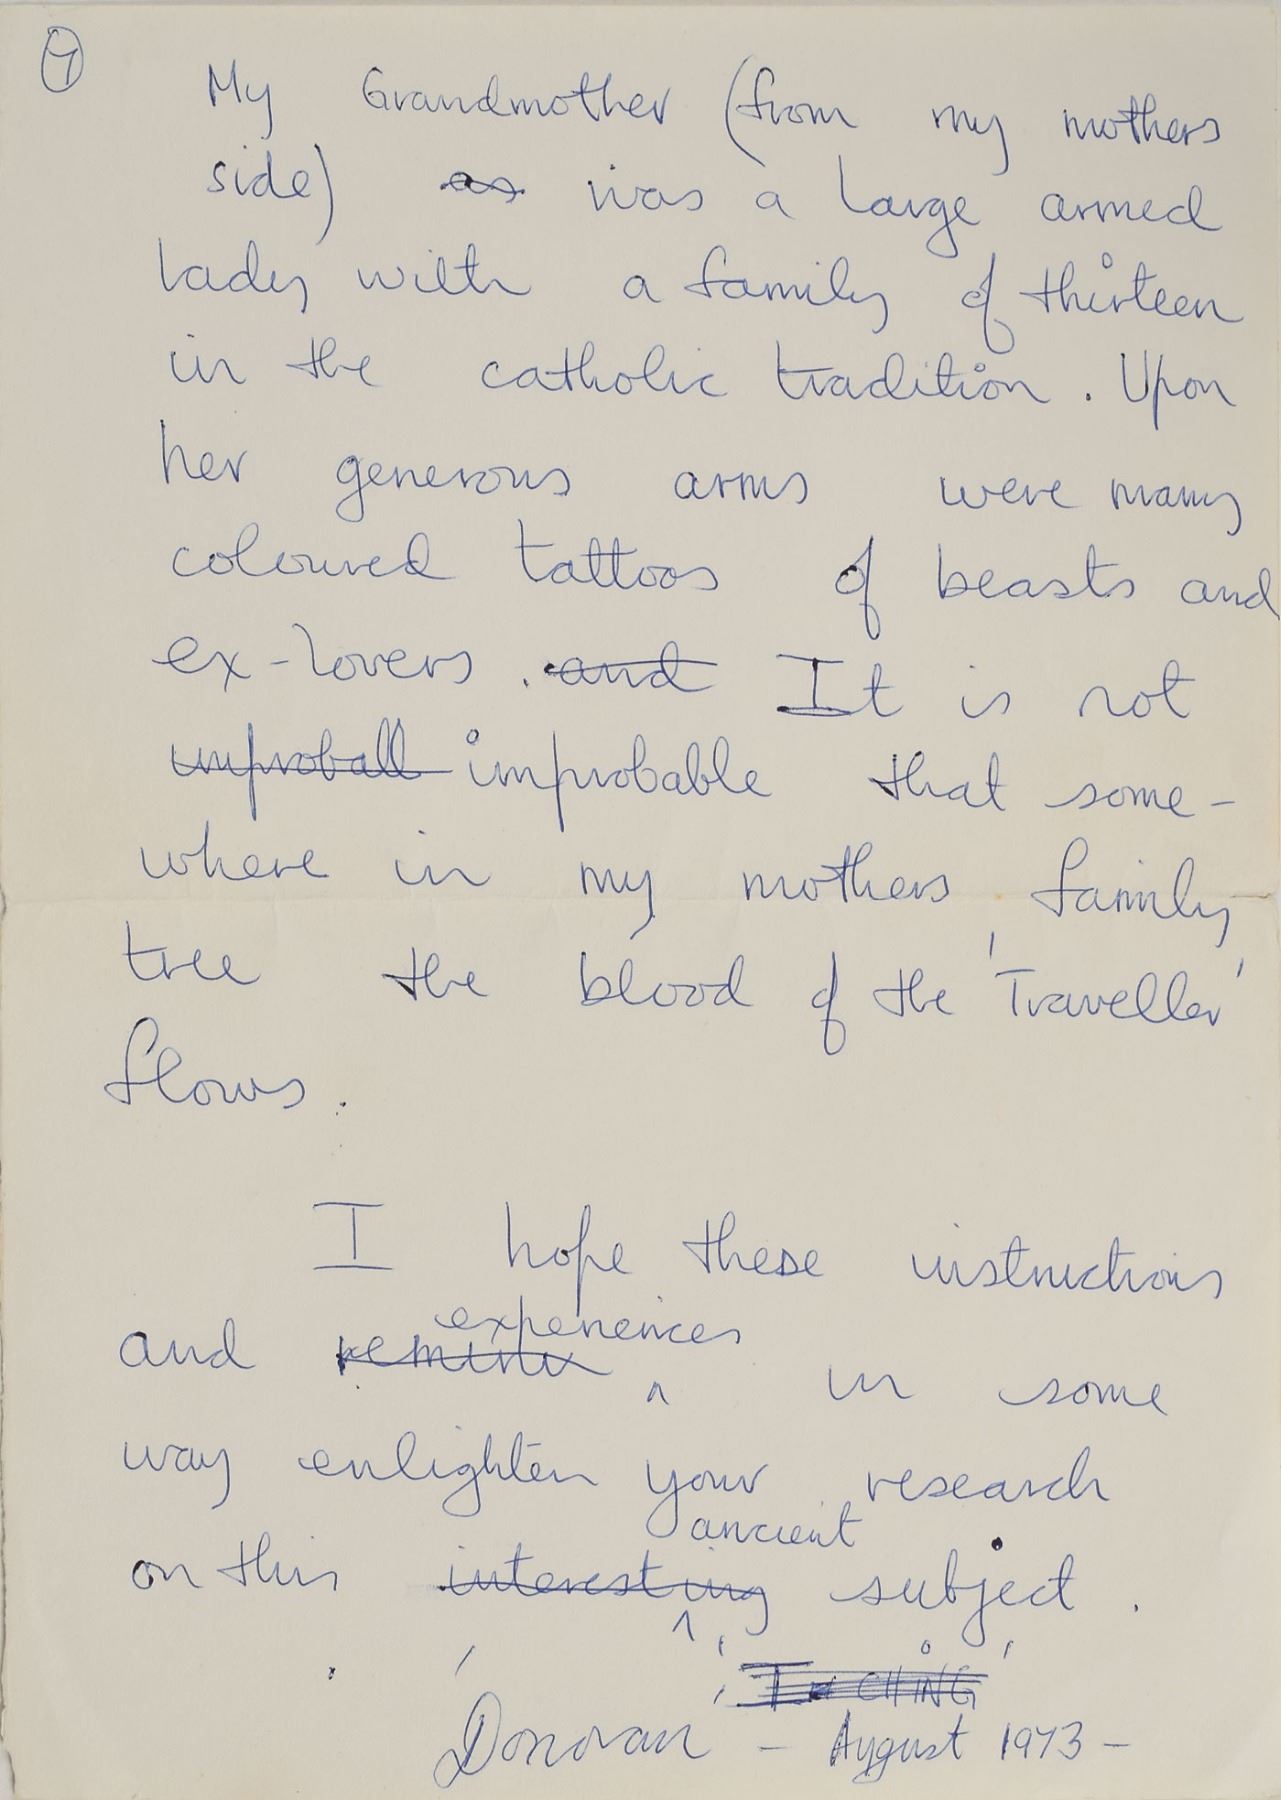 7
My Grandmother (from my mothers
side) as was a large armed
lady with a family of thirteen
in the catholic tradition. Upon
her generous arms were many
coloured tattoos of beasts and
ex-lovers. and It is not
unproball improbable that some-
where in my mothers family
tree the blood of the 'Traveller'
flows.
I hope these instructions
experiences
and reminis in some
way enlighten your research
ancient
on this interesting subject.
'I CHING'
Donovan - August 1973 -